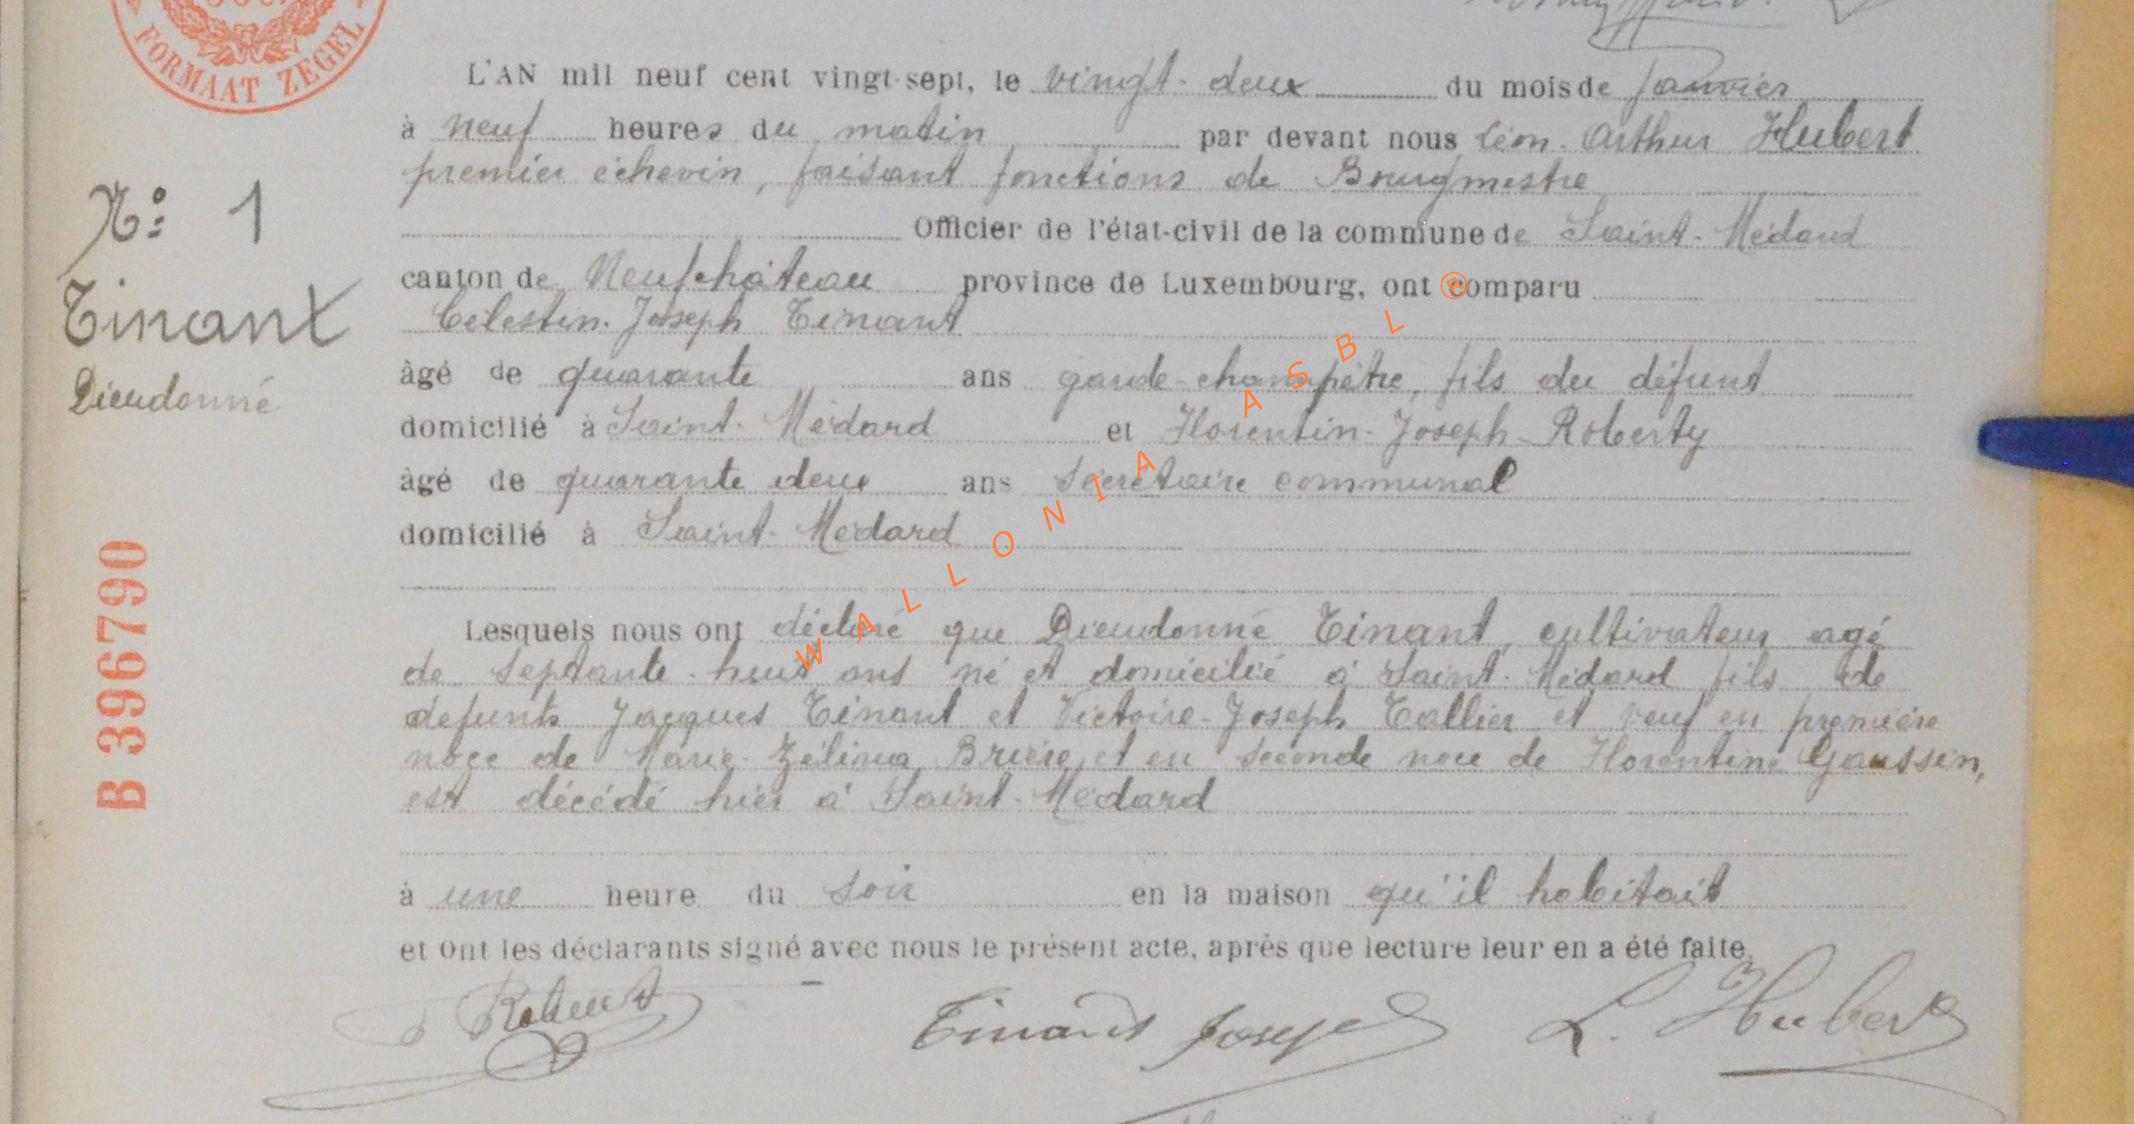 FORMAAT ZEGEL
L'AN mil neuf cent vingt-sept, le vingt-deux du mois de Janvier
à neuf heures du matin par devant nous Léon-Arthur Hubert
premier échevin, faisant fonctions de Bourgmestre
Officier de l'état-civil de la commune de Saint-Médard
canton de Neufchâteau province de Luxembourg, ont comparu
Célestin-Joseph Tinant
âgé de quarante ans garde-champêtre, fils du défunt
domicilié à Saint-Médard et Florentin-Joseph Roberty
âgé de quarante deux ans secrétaire communal
domicilié à Saint-Médard
Lesquels nous ont déclaré que Dieudonné Tinant, cultivateur agé
de septante-huit ans né et domicilié à Saint-Médard fils de
défunts Jacques Tinant et Victoire-Joseph Tallier et veuf en première
noce de Marie-Zélina Brière, et en seconde noce de Florentine Gaussin,
est décédé hier à Saint-Médard
à une heure du soir en la maison qu'il habitait
et ont les déclarants signé avec nous le présent acte, après que lecture leur en a été faite.
Tinant Joseph L. Hubert
N° 1
Tinant
Dieudonné
B 396790
WALLONIA ASBL ®